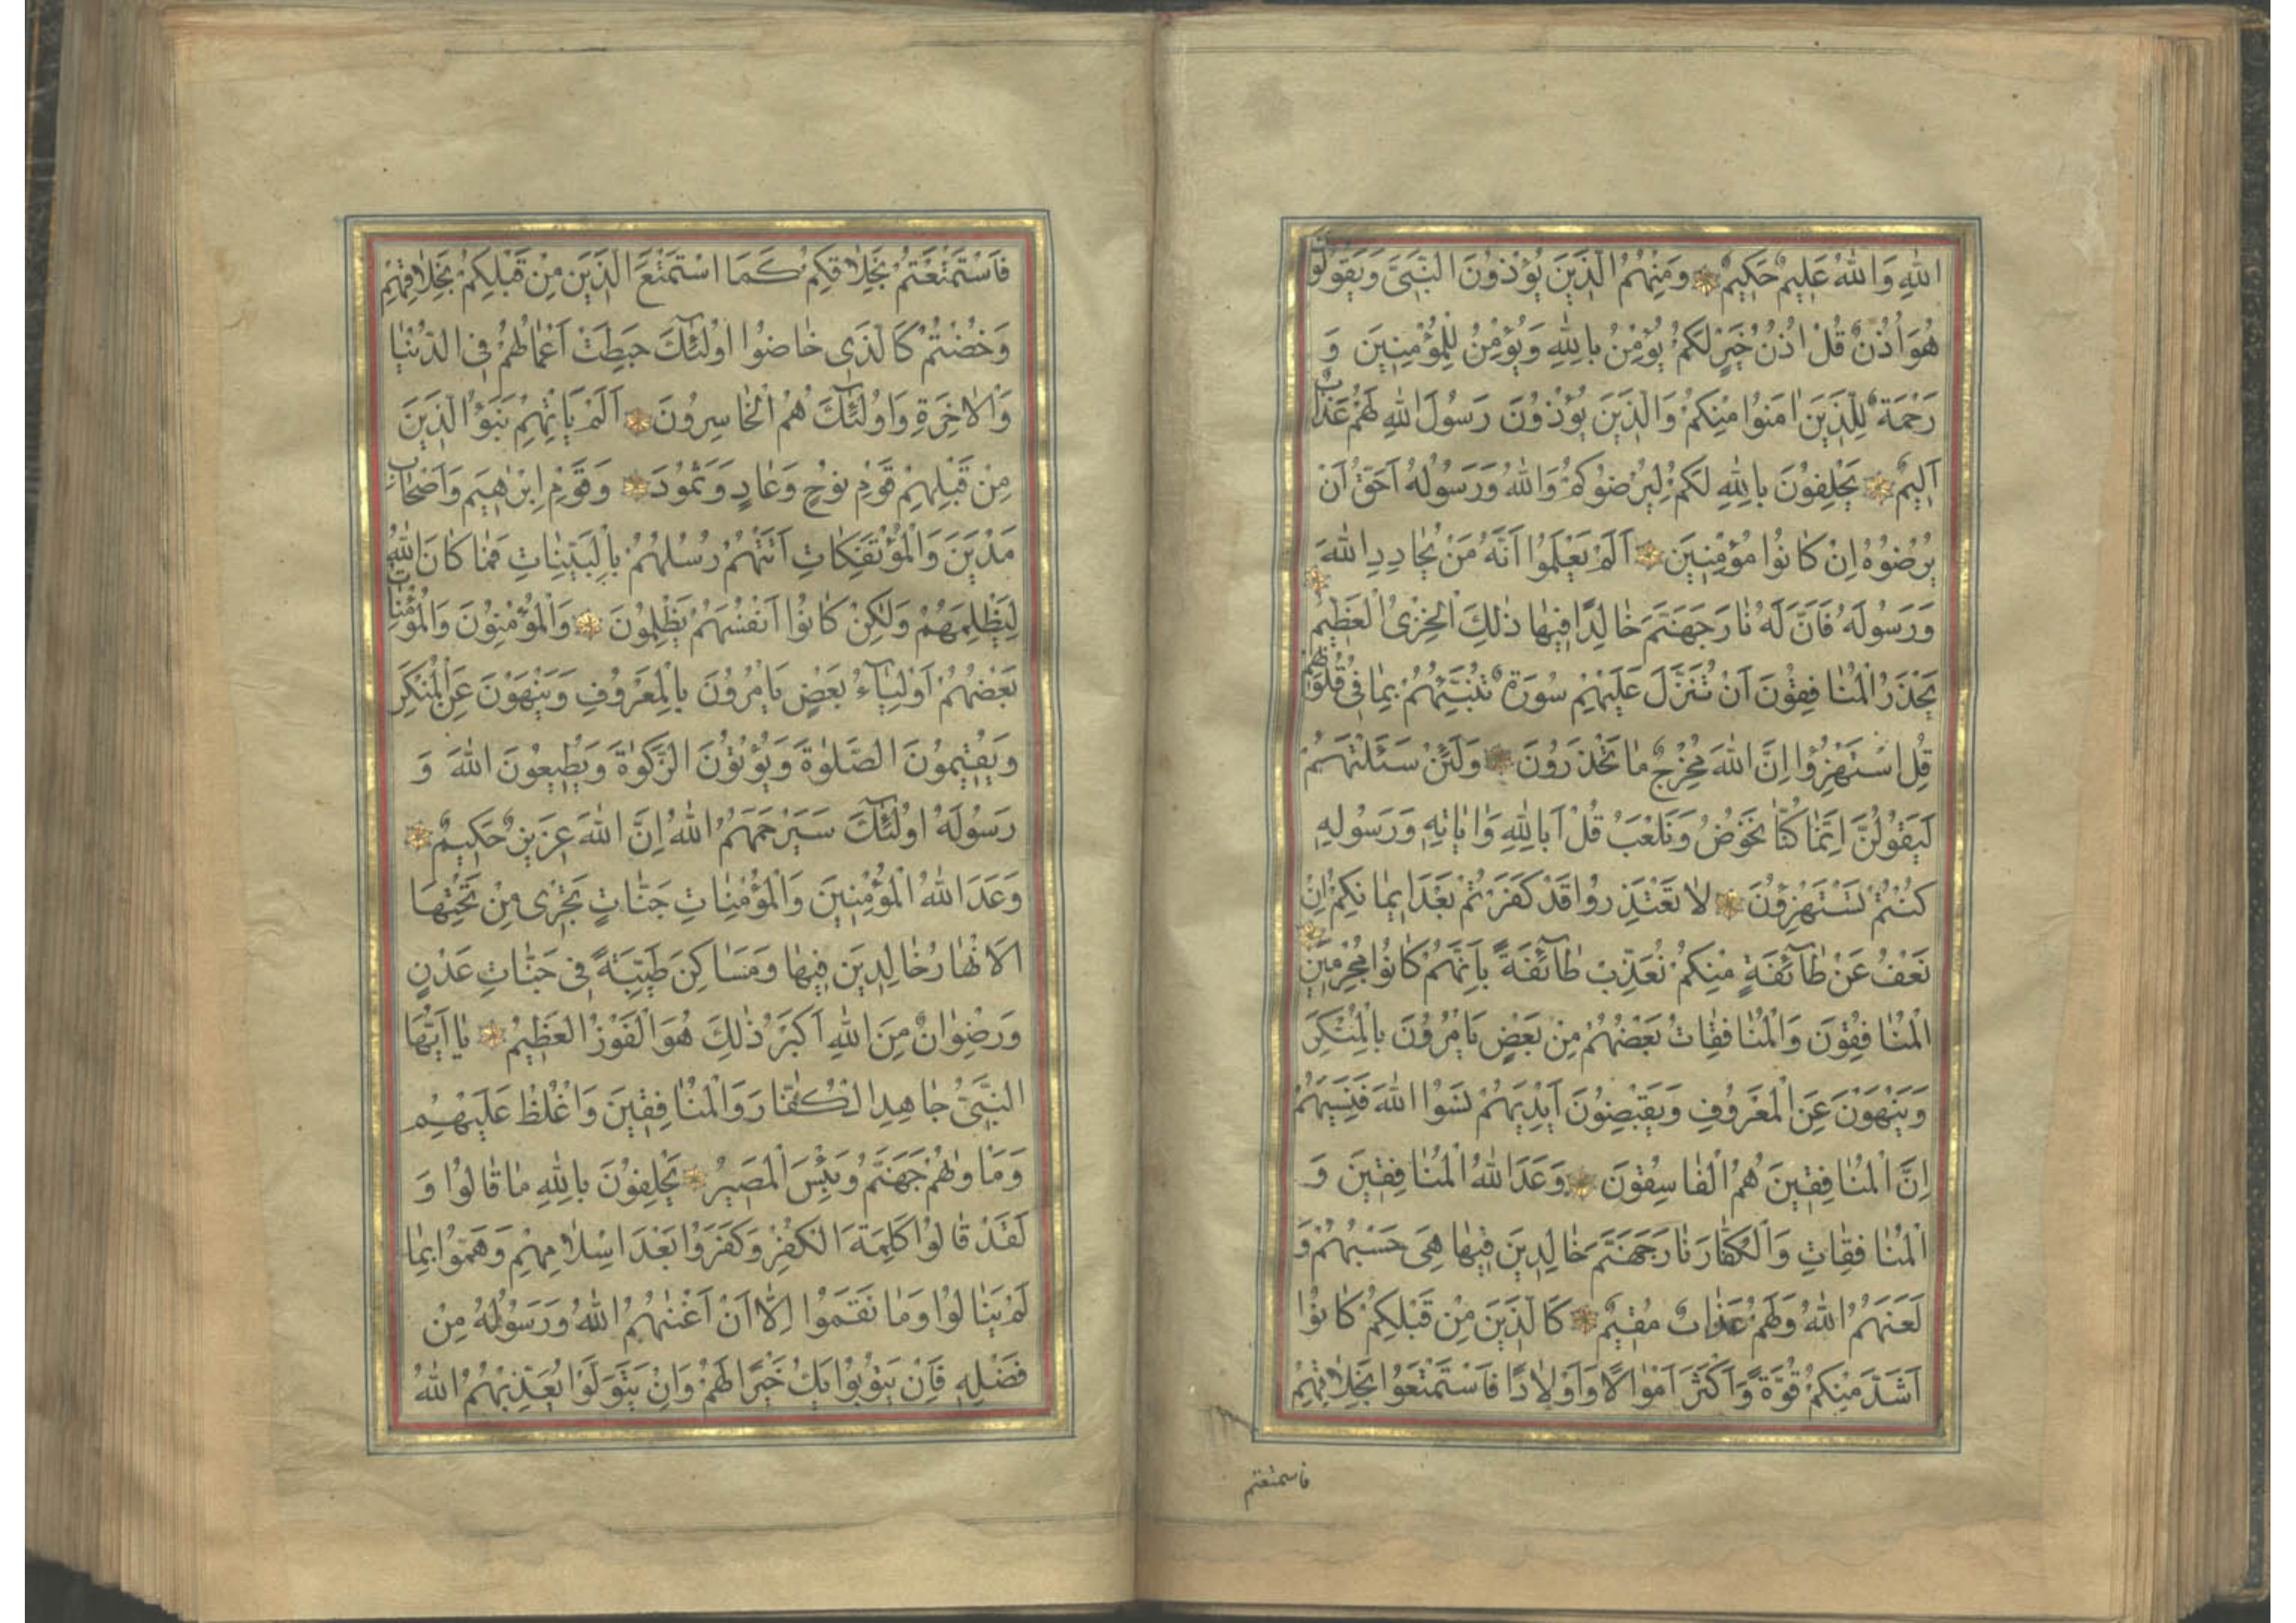 اللهِ وَاللهُ عَلِيمٌ حَكِيمٌ وَمِنْهُمُ الَّذِينَ يُؤْذُونَ النَّبِيَّ وَيَقُولُونَ
هُوَ اُذُنٌ قُلْ اُذُنُ خَيْرٍ لَكُمْ يُؤْمِنُ بِاللهِ وَيُؤْمِنُ لِلْمُؤْمِنِينَ وَ
رَحْمَةٌ لِلَّذِينَ اٰمَنُوا مِنْكُمْ وَالَّذِينَ يُؤْذُونَ رَسُولَ اللهِ لَهُمْ عَذَابٌ
اَلِيمٌ يَحْلِفُونَ بِاللهِ لَكُمْ لِيُرْضُوكُمْ وَاللهُ وَرَسُولُهُ اَحَقُّ اَنْ
يُرْضُوهُ اِنْ كَانُوا مُؤْمِنِينَ اَلَمْ يَعْلَمُوا اَنَّهُ مَنْ يُحَادِدِ اللهَ
وَرَسُولَهُ فَاَنَّ لَهُ نَارَ جَهَنَّمَ خَالِدًا فِيهَا ذٰلِكَ الْخِزْىُ الْعَظِيمُ
يَحْذَرُ الْمُنَافِقُونَ اَنْ تُنَزَّلَ عَلَيْهِمْ سُورَةٌ تُنَبِّئُهُمْ بِمَا فِي قُلُوبِهِمْ
قُلِ اسْتَهْزِؤُا اِنَّ اللهَ مُخْرِجٌ مَا تَحْذَرُونَ وَلَئِنْ سَئَلْتَهُمْ
لَيَقُولُنَّ اِنَّمَا كُنَّا نَخُوضُ وَنَلْعَبُ قُلْ اَبِاللهِ وَاٰيَاتِهِ وَرَسُولِهِ
كُنْتُمْ تَسْتَهْزِؤُنَ لَا تَعْتَذِرُوا قَدْ كَفَرْتُمْ بَعْدَ اِيمَانِكُمْ اِنْ
نَعْفُ عَنْ طَآئِفَةٍ مِنْكُمْ نُعَذِّبْ طَآئِفَةً بِاَنَّهُمْ كَانُوا مُجْرِمِينَ
الْمُنَافِقُونَ وَالْمُنَافِقَاتُ بَعْضُهُمْ مِنْ بَعْضٍ يَاْمُرُونَ بِالْمُنْكَرِ
وَيَنْهَوْنَ عَنِ الْمَعْرُوفِ وَيَقْبِضُونَ اَيْدِيَهُمْ نَسُوا اللهَ فَنَسِيَهُمْ
اِنَّ الْمُنَافِقِينَ هُمُ الْفَاسِقُونَ وَعَدَ اللهُ الْمُنَافِقِينَ وَ
الْمُنَافِقَاتِ وَالْكُفَّارَ نَارَ جَهَنَّمَ خَالِدِينَ فِيهَا هِيَ حَسْبُهُمْ وَ
لَعَنَهُمُ اللهُ وَلَهُمْ عَذَابٌ مُقِيمٌ كَالَّذِينَ مِنْ قَبْلِكُمْ كَانُوا
اَشَدَّ مِنْكُمْ قُوَّةً وَاَكْثَرَ اَمْوَالًا وَاَوْلَادًا فَاسْتَمْتَعُوا بِخَلَاقِهِمْ
فاستمتعتم
فَاسْتَمْتَعْتُمْ بِخَلَاقِكُمْ كَمَا اسْتَمْتَعَ الَّذِينَ مِنْ قَبْلِكُمْ بِخَلَاقِهِمْ
وَخُضْتُمْ كَالَّذِى خَاضُوا اُولٰئِكَ حَبِطَتْ اَعْمَالُهُمْ فِى الدُّنْيَا
وَالْاٰخِرَةِ وَاُولٰئِكَ هُمُ الْخَاسِرُونَ اَلَمْ يَاْتِهِمْ نَبَؤُا الَّذِينَ
مِنْ قَبْلِهِمْ قَوْمِ نُوحٍ وَعَادٍ وَثَمُودَ وَقَوْمِ اِبْرٰهِيمَ وَاَصْحَابِ
مَدْيَنَ وَالْمُؤْتَفِكَاتِ اَتَتْهُمْ رُسُلُهُمْ بِالْبَيِّنَاتِ فَمَا كَانَ اللهُ
لِيَظْلِمَهُمْ وَلٰكِنْ كَانُوا اَنْفُسَهُمْ يَظْلِمُونَ وَالْمُؤْمِنُونَ وَالْمُؤْمِنَاتُ
بَعْضُهُمْ اَوْلِيَآءُ بَعْضٍ يَاْمُرُونَ بِالْمَعْرُوفِ وَيَنْهَوْنَ عَنِ الْمُنْكَرِ
وَيُقِيمُونَ الصَّلٰوةَ وَيُؤْتُونَ الزَّكٰوةَ وَيُطِيعُونَ اللهَ وَ
رَسُولَهُ اُولٰئِكَ سَيَرْحَمُهُمُ اللهُ اِنَّ اللهَ عَزِيزٌ حَكِيمٌ
وَعَدَ اللهُ الْمُؤْمِنِينَ وَالْمُؤْمِنَاتِ جَنَّاتٍ تَجْرِى مِنْ تَحْتِهَا
الْاَنْهَارُ خَالِدِينَ فِيهَا وَمَسَاكِنَ طَيِّبَةً فِى جَنَّاتِ عَدْنٍ
وَرِضْوَانٌ مِنَ اللهِ اَكْبَرُ ذٰلِكَ هُوَ الْفَوْزُ الْعَظِيمُ يَا اَيُّهَا
النَّبِىُّ جَاهِدِ الْكُفَّارَ وَالْمُنَافِقِينَ وَاغْلُظْ عَلَيْهِمْ
وَمَاْوٰهُمْ جَهَنَّمُ وَبِئْسَ الْمَصِيرُ يَحْلِفُونَ بِاللهِ مَا قَالُوا وَ
لَقَدْ قَالُوا كَلِمَةَ الْكُفْرِ وَكَفَرُوا بَعْدَ اِسْلَامِهِمْ وَهَمُّوا بِمَا
لَمْ يَنَالُوا وَمَا نَقَمُوا اِلَّا اَنْ اَغْنٰيهُمُ اللهُ وَرَسُولُهُ مِنْ
فَضْلِهِ فَاِنْ يَتُوبُوا يَكُ خَيْرًا لَهُمْ وَاِنْ يَتَوَلَّوْا يُعَذِّبْهُمُ اللهُ